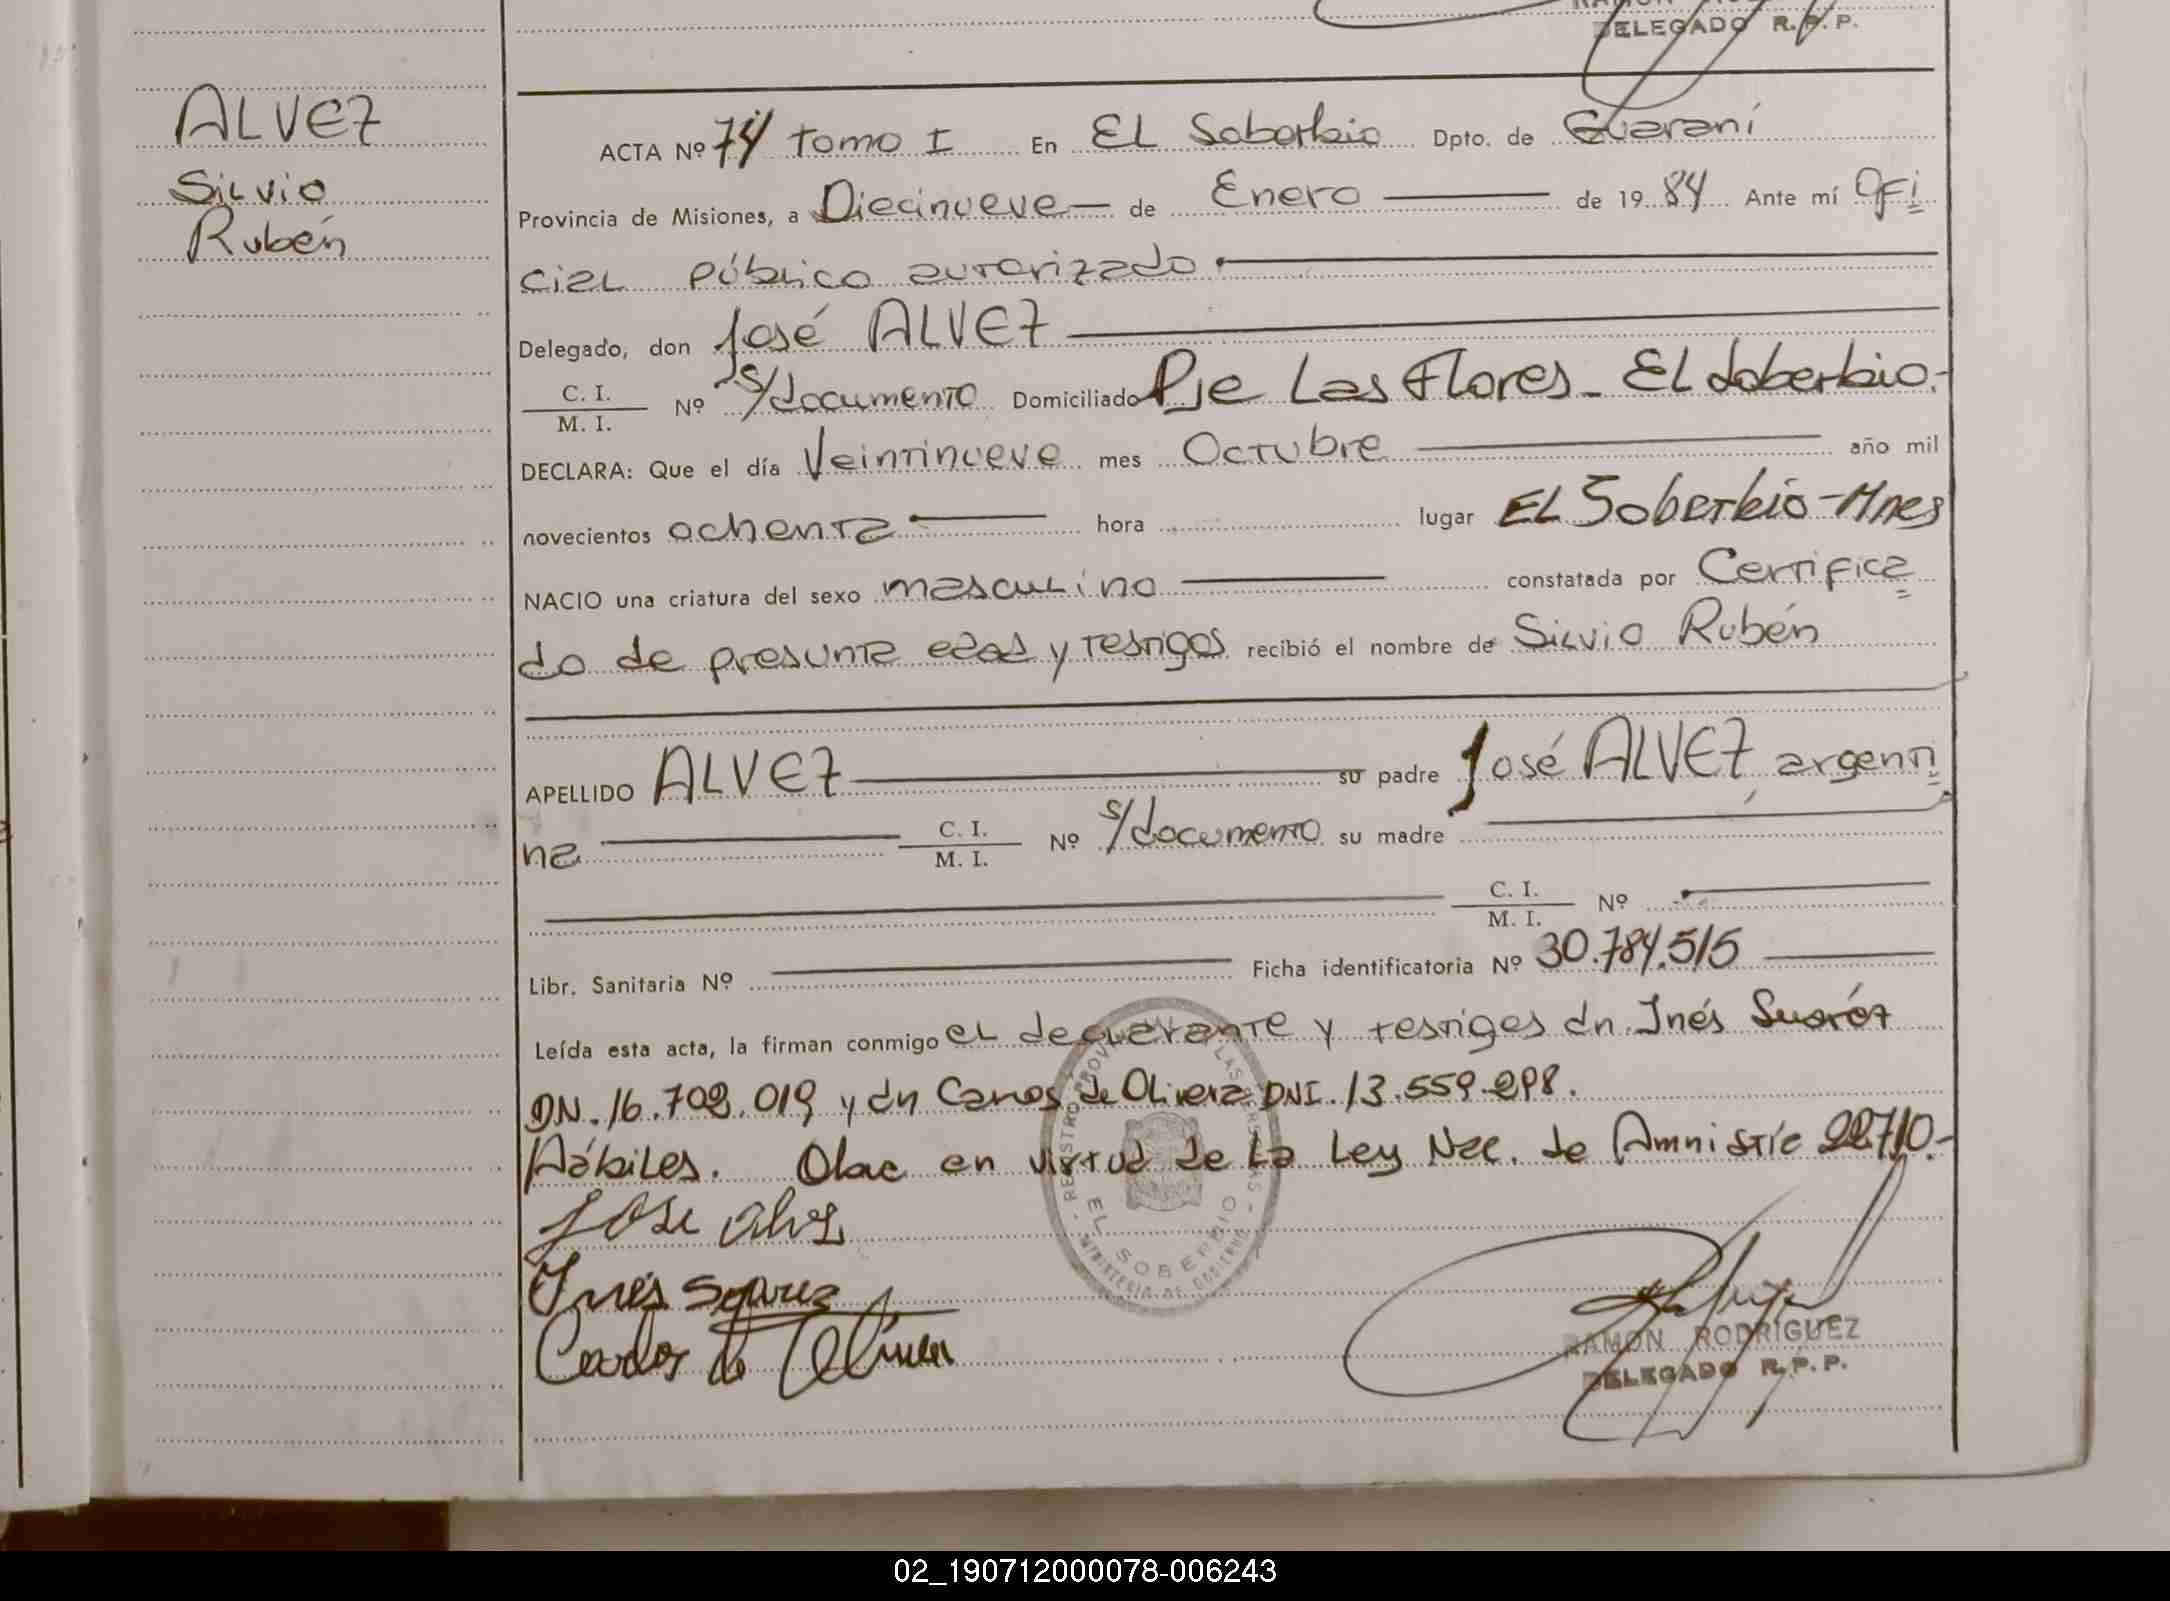 DELEGADO R.P.P.
ALVEZ
Silvio
Rubén
ACTA Nº 74 Tomo I En EL Soberbio Dpto. de Guaraní
Provincia de Misiones, a Diecinueve — de Enero — de 1984 Ante mí Ofi
cial público autorizado
Delegado, don José ALVEZ
C. I. / M. I. Nº s/documento Domiciliado Pje Las Flores - EL Soberbio.-
DECLARA: Que el día Veintinueve mes Octubre año mil
novecientos ochenta hora lugar EL Soberbio - Mnes
NACIO una criatura del sexo masculino constatada por Certifica
do de presunta edad y testigos recibió el nombre de Silvio Rubén
APELLIDO ALVEZ su padre José ALVEZ argenti
na C. I. / M. I. Nº s/documento su madre
C. I. / M. I. Nº
Libr. Sanitaria Nº Ficha identificatoria Nº 30.784.515
Leída esta acta, la firman conmigo el declarante y testigos dn Inés Suaréz
DN. 16.702.019 y dn Carlos de Olivera DNI. 13.559.298.
Hábiles. Obac en virtud de La Ley Nac. de Amnistía 22710.-
José Alvez
Inés Suarez
Carlos de Olivera
EL SOBERBIO
RAMON RODRIGUEZ
DELEGADO R.P.P.
02_190712000078-006243